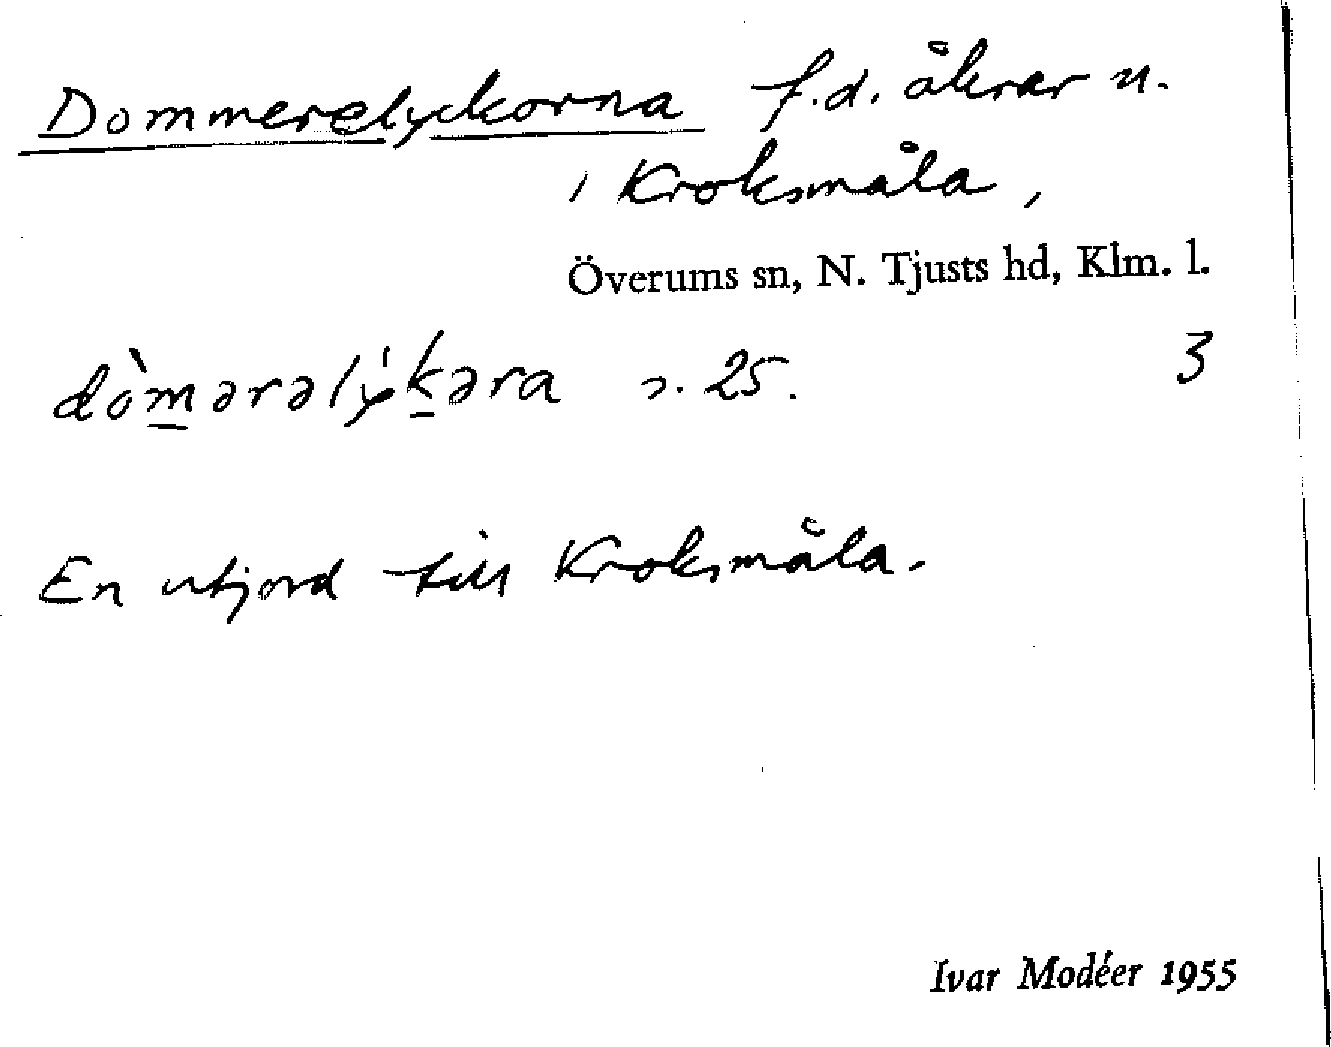 Dommerelyckorna f.d. åkrar n.
i Kroksmåla,
Överums sn, N. Tjusts hd, Klm. l.
dòm̲ərəlý̀k̲əra s. 25. 3
En utjord till Kroksmåla.
Ivar Modéer 1955